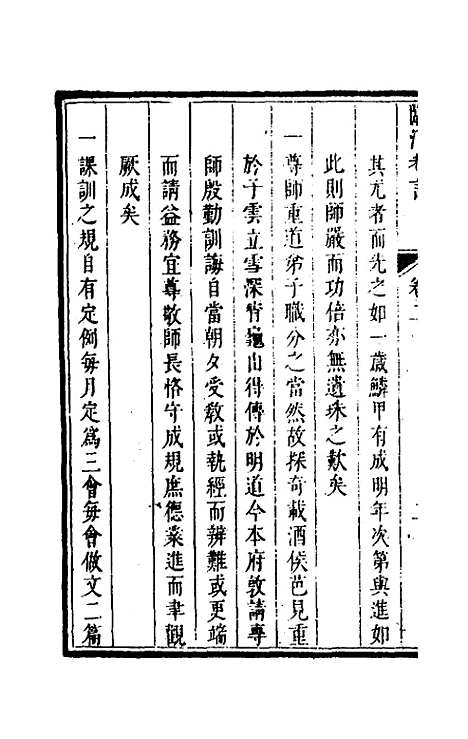 臨汀考言
卷二
其尤者而先之如一歲鱗甲有成明年次第與進如
此則師嚴而功倍亦無遺珠之歎矣
一尊師重道弟子職分之當然故探奇載酒侯芭見重
於子雲立雪深宵龜山得傳於明道今本府敦請專
師殷勤訓誨自當朝夕受敎或執經而辨難或更端
而請益務宜尊敬師長恪守成規庶德業進而聿觀
厥成矣
一課訓之規自有定例每月定爲三會每會做文二篇